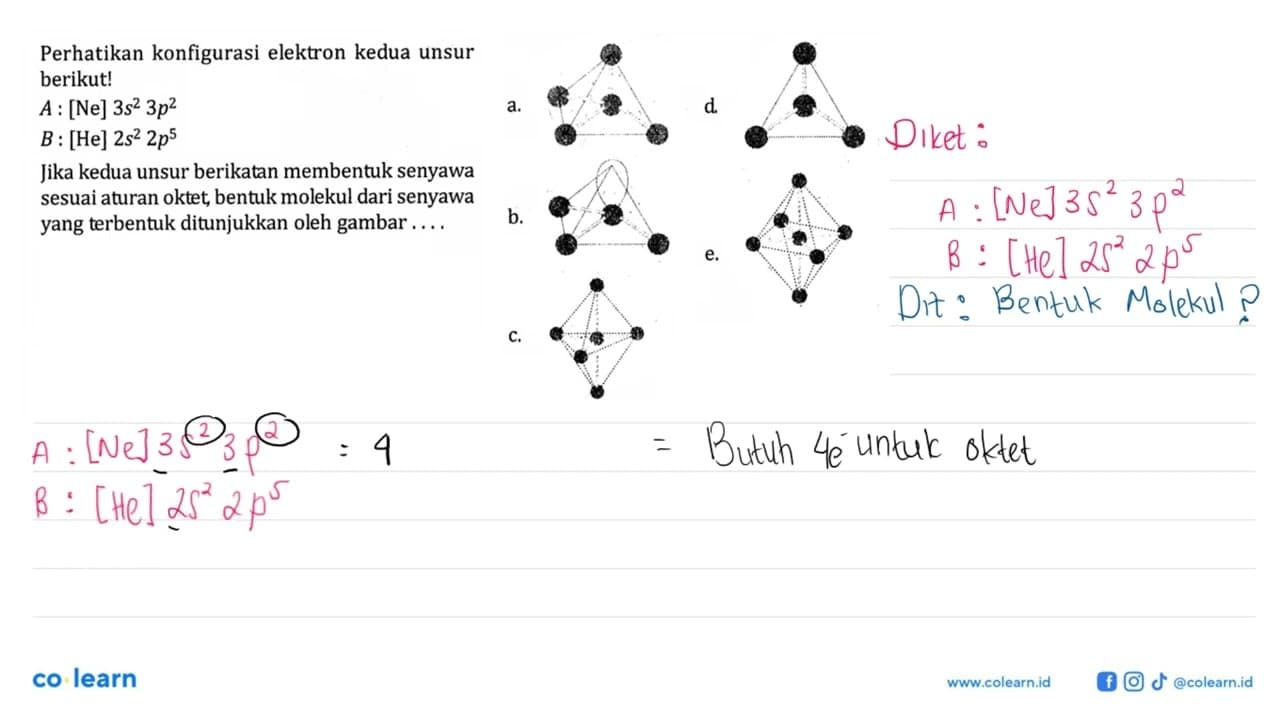 Perhatikan konfigurasi elektron kedua unsur
berikut!
A : [Ne] 3s² 3p²
B : [He] 2s² 2p⁵
Jika kedua unsur berikatan membentuk senyawa
sesuai aturan oktet, bentuk molekul dari senyawa
yang terbentuk ditunjukkan oleh gambar . . . .
a.
b.
c.
d.
e.
Diket :
A : [Ne] 3s² 3p²
B : [He] 2s² 2p⁵
Dit : Bentuk Molekul ?
A : [Ne] 3s² 3p² : 4 = Butuh 4e⁻ untuk oktet
B : [He] 2s² 2p⁵
co learn
www.colearn.id
@colearn.id